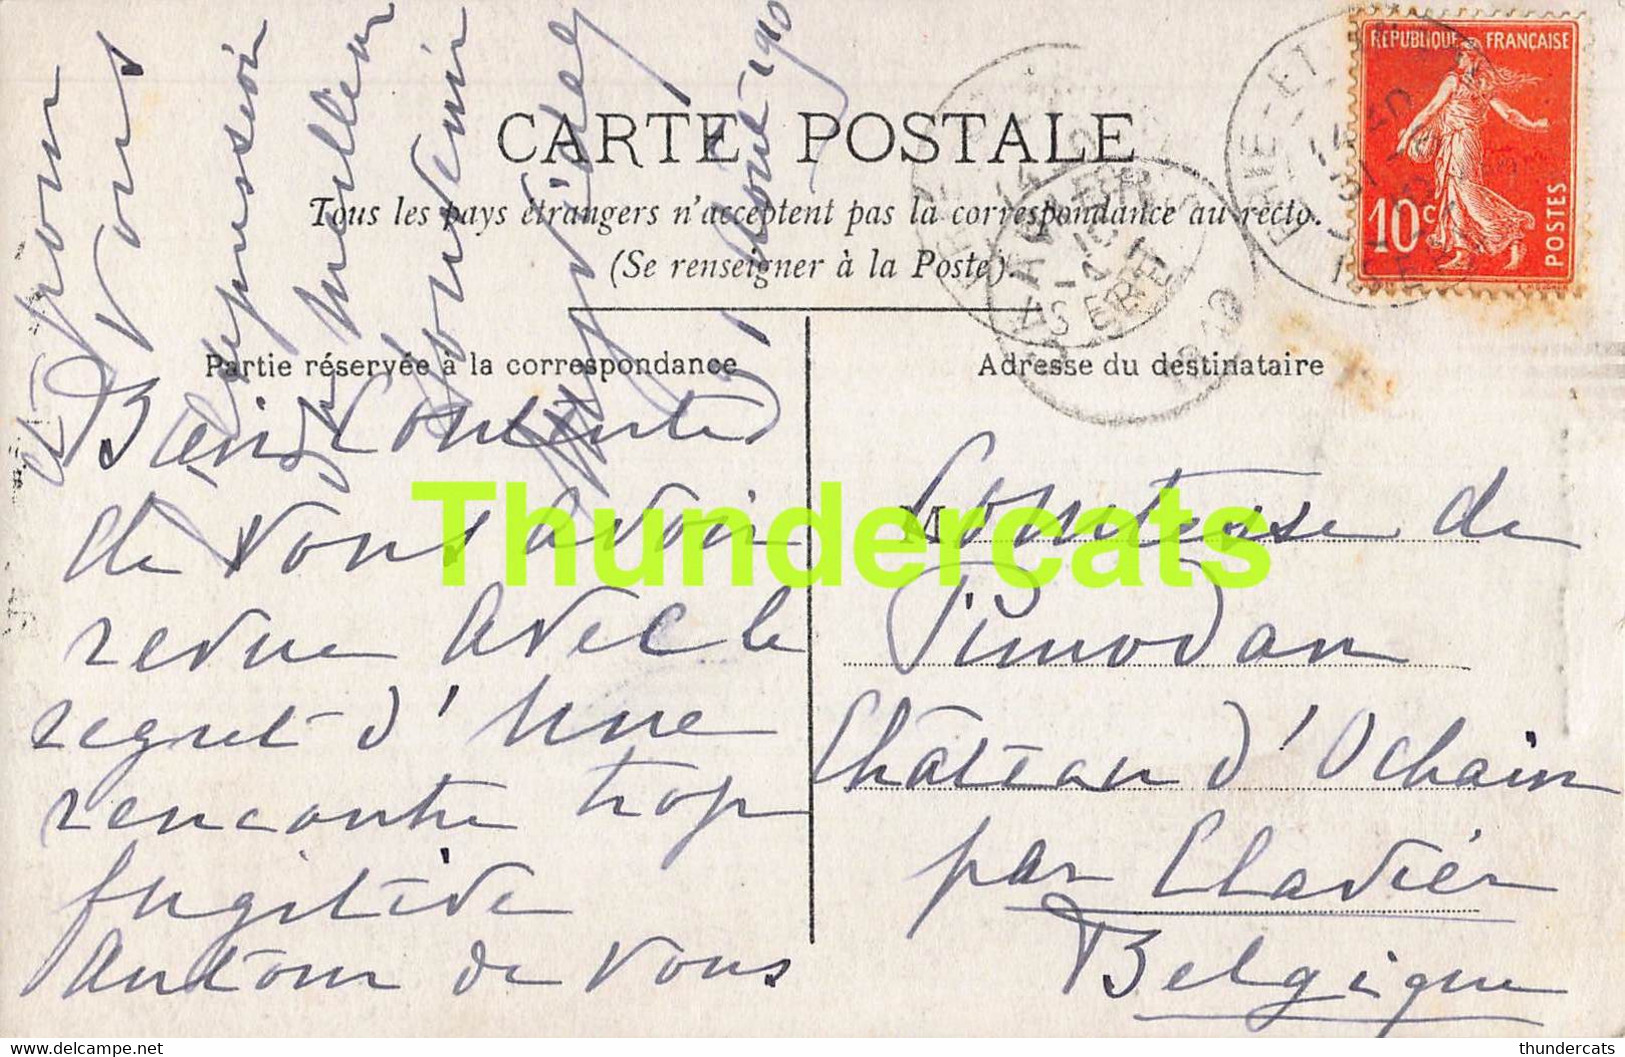 RÉPUBLIQUE FRANÇAISE
10c POSTES
CARTE POSTALE
Tous les pays étrangers n'acceptent pas la correspondance au recto.
(Se renseigner à la Poste)
ISERE
Partie réservée à la correspondance
Adresse du destinataire
Bien contente
de vous avoir
revue avec le
regret d'une
rencontre trop
fugitive
autour de vous
et pour
vous
l'expression
du meilleur
souvenir
août 190
M Comtesse de
Pimodan
Château d'Ochain
par Clavier
Belgique
Thundercats
thundercats